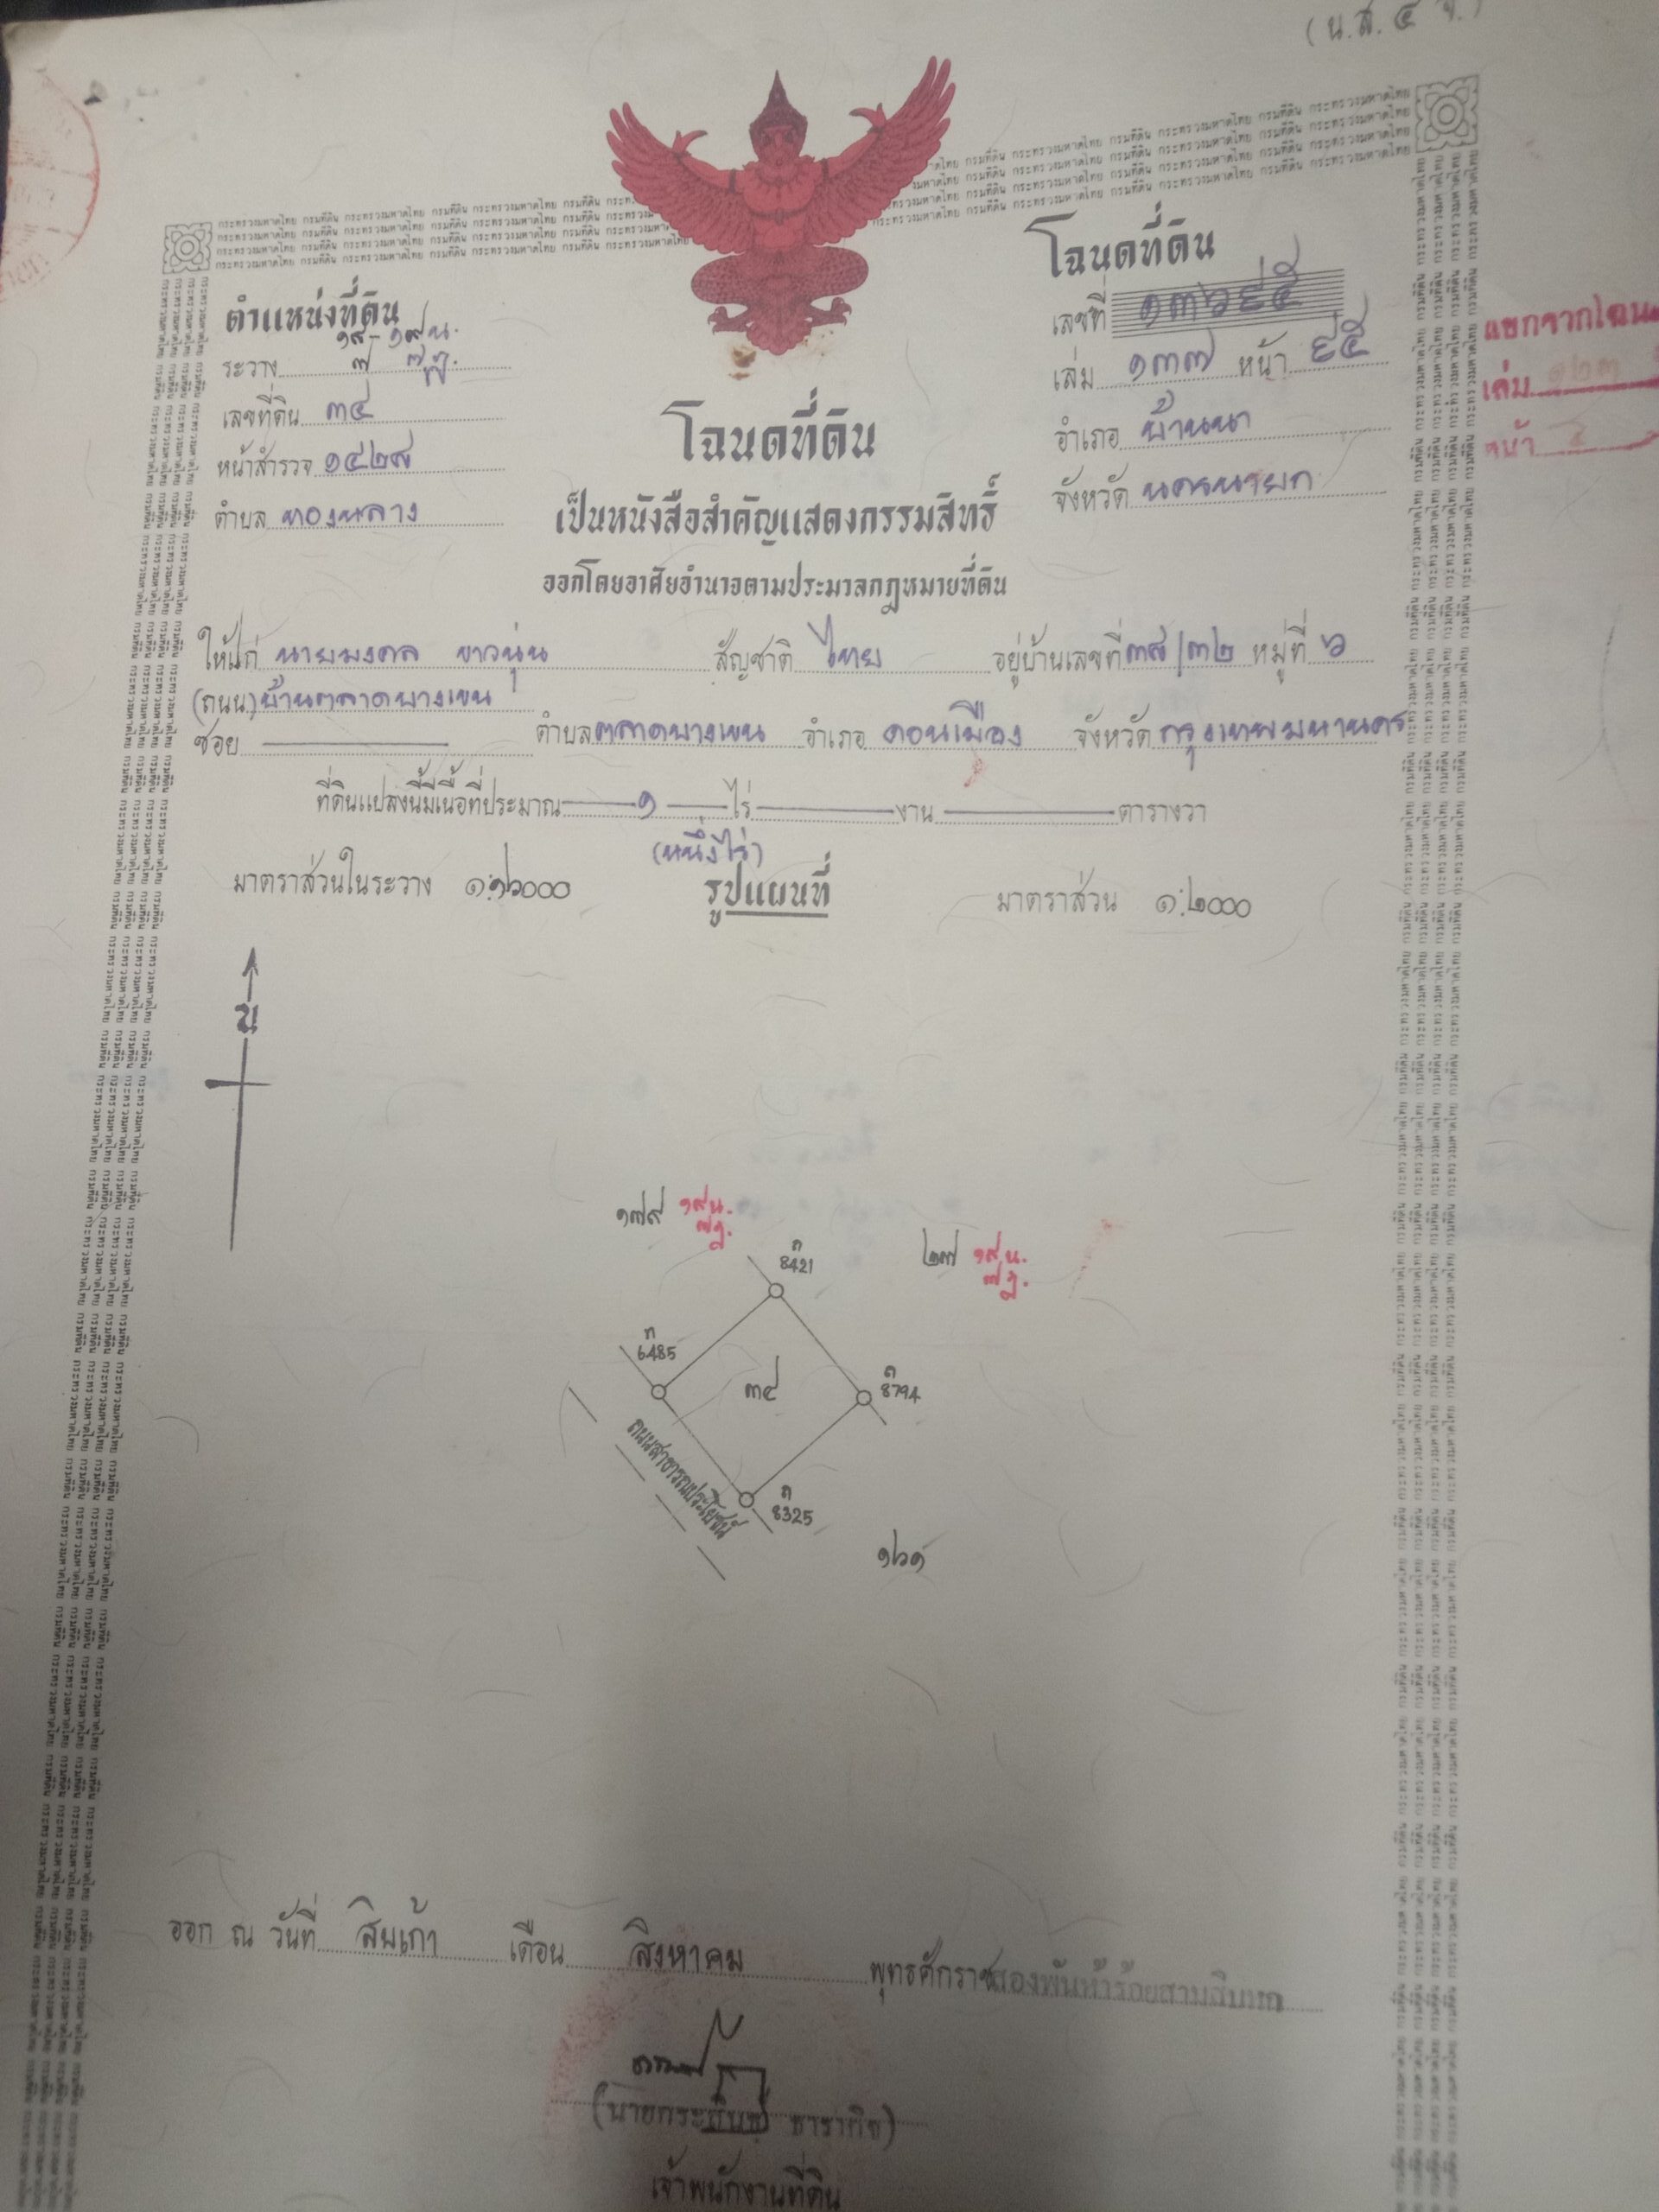 (น.ส. ๔ จ.)
ตำแหน่งที่ดิน
ระวาง
เลขที่ดิน ๓๔
หน้าสำรวจ ๑๔๒๗
ตำบล ทองหลาง
โฉนดที่ดิน
เลขที่ ๑๓๖๙๕
เล่ม ๑๓๗ หน้า ๙๕
อำเภอ บ้านนา
จังหวัด นครนายก
แยกจากโฉนด
เล่ม ๑๒๓
หน้า
โฉนดที่ดิน
เป็นหนังสือสำคัญแสดงกรรมสิทธิ์
ออกโดยอาศัยอำนาจตามประมวลกฎหมายที่ดิน
ให้แก่ นายมงคล ขาวนุ่น สัญชาติ ไทย อยู่บ้านเลขที่ ๓๘/๓๒ หมู่ที่ ๖
(ถนน) บ้านตลาดบางเขน
ซอย ตำบล ตลาดบางเขน อำเภอ ดอนเมือง จังหวัด กรุงเทพมหานคร
ที่ดินแปลงนี้มีเนื้อที่ประมาณ ๑ ไร่ งาน ตารางวา
(หนึ่งไร่)
มาตราส่วนในระวาง รูปแผนที่ มาตราส่วน ๑:๒๐๐๐
น
๑๗๙ ๑๙น.
๒๗ ๑๙น.
ก
8421
ก
6485
๓๔
ก
8794
ถนนสาธารณประโยชน์
ก
8325
๑๖๑
ออก ณ วันที่ สิบเก้า เดือน สิงหาคม พุทธศักราช สองพันห้าร้อยสามสิบหก
เจ้าพนักงานที่ดิน